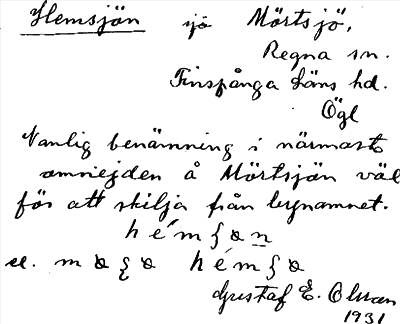 Hemsjön sjö Mörtsjö,
Regna sn.
Finspånga läns hd.
Ögl
Vanlig benämning i närmaste
omnejden å Mörtsjön väl
för att skilja från bynamnet.
Gustaf E. Olsson
1931